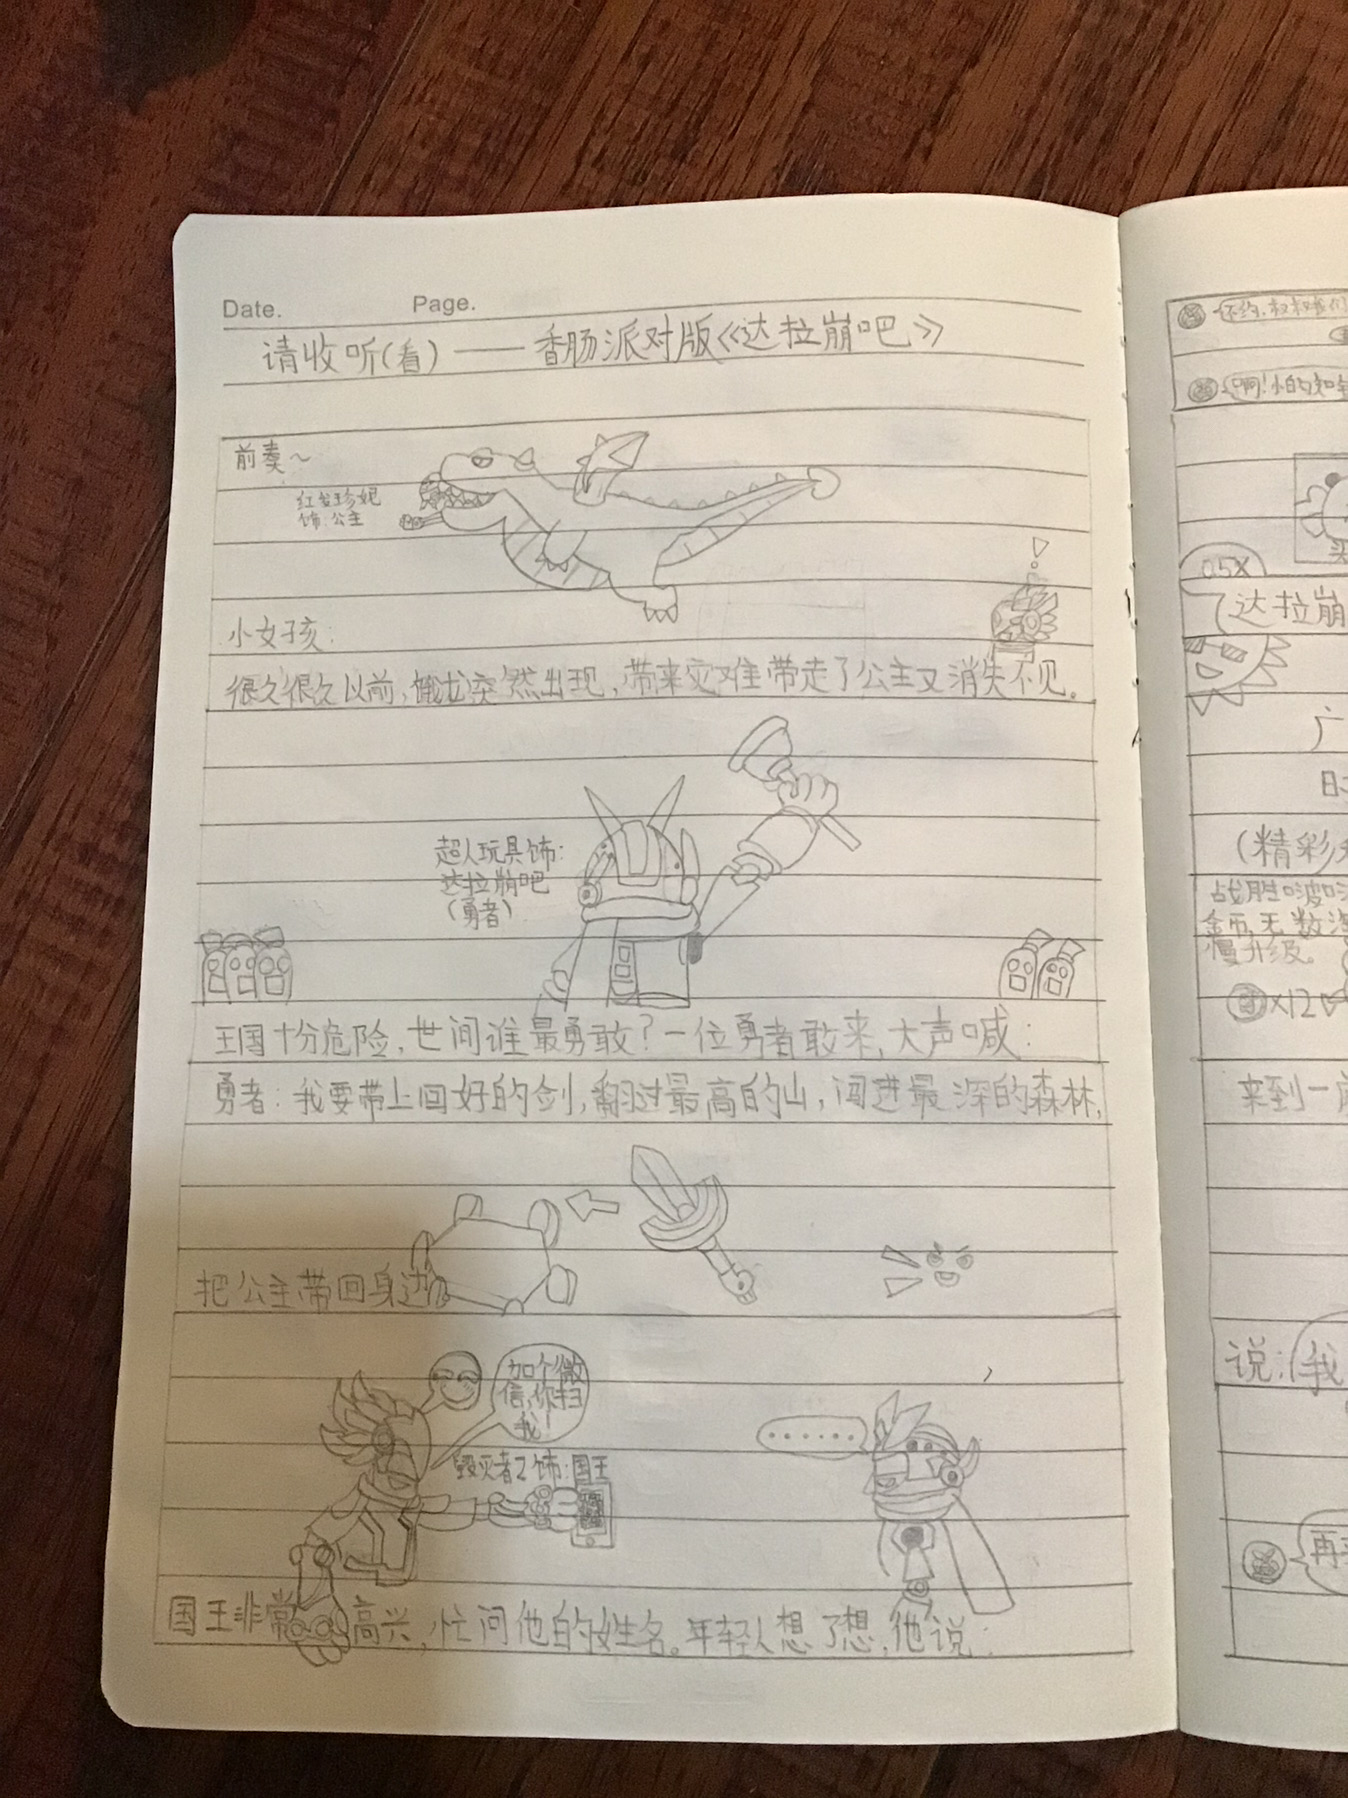 Date.
Page.
请收听(看)——香肠派对版《达拉崩吧》
前奏~
红发珍妮
饰:公主
!
小女孩:
很久很久以前,巨龙突然出现,带来灾难带走了公主又消失不见。
超人玩具饰:
达拉崩吧
(勇者)
王国十分危险,世间谁最勇敢?一位勇者敢来,大声喊:
勇者:我要带上回好的剑,翻过最高的山,闯进最深的森林,
把公主带回身边
加个微
信,你扫
我!
毁灭者Z饰:国王
......
国王非常高兴,忙问他的姓名。年轻人想了想,他说:
啊!小的知
05X
达拉崩
广
(精彩
战胜
金币,无数
慢升级。
x12
来到一
说:我
再